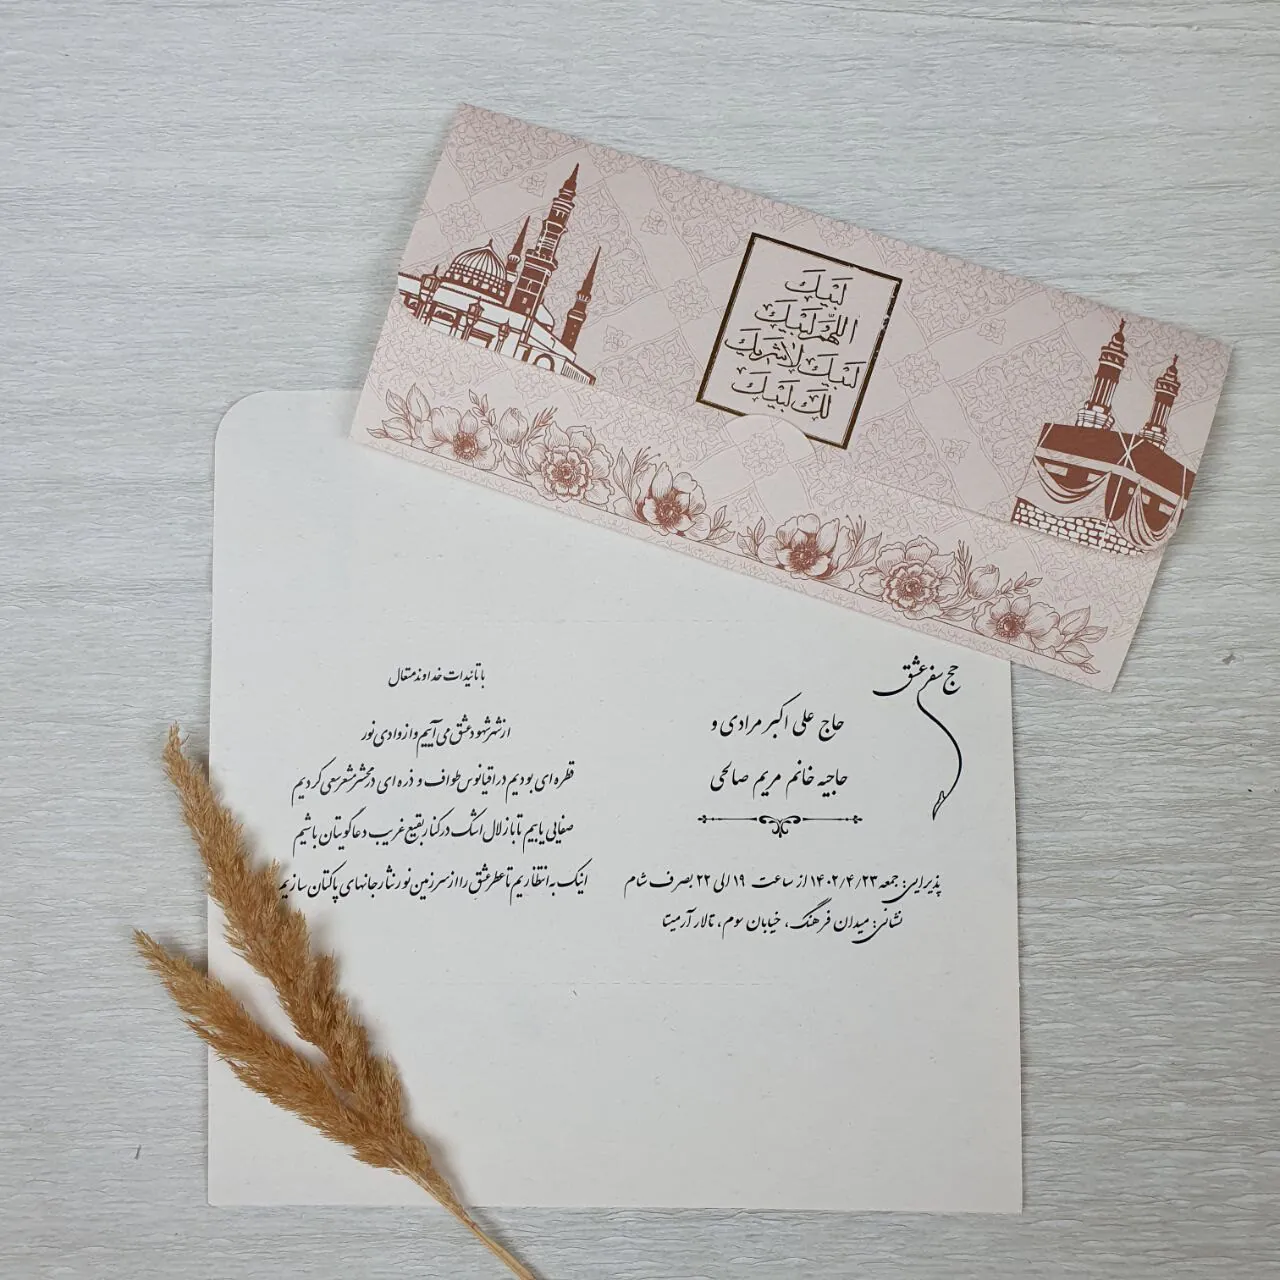 لَبَّيكَ
اللّهُمَّ لَبَّيكَ
لَبَّيكَ لا شَرِيكَ
لَكَ لَبَّيكَ
حج سفر عشق
حاج علی اکبر مرادی و
حاجیه خانم مریم صالحی
پذیرایی: جمعه ۱۴۰۲/۴/۲۳ از ساعت ۱۹ الی ۲۲ بصرف شام
نشانی: میدان فرهنگ، خیابان سوم، تالار آرمیتا
با تائیدات خداوند متعال
از شهر شهود عشق می آییم و از وادی نور
قطره ای بودیم در اقیانوس طواف و ذره ای در محشر مشعر سعی کردیم
صفایی یابیم تا با زلال اشک در کنار بقیع غریب دعاگویتان باشیم
اینک به انتظاریم تا عطر عشق را از سرزمین نور نثار جانهای پاکتان سازیم